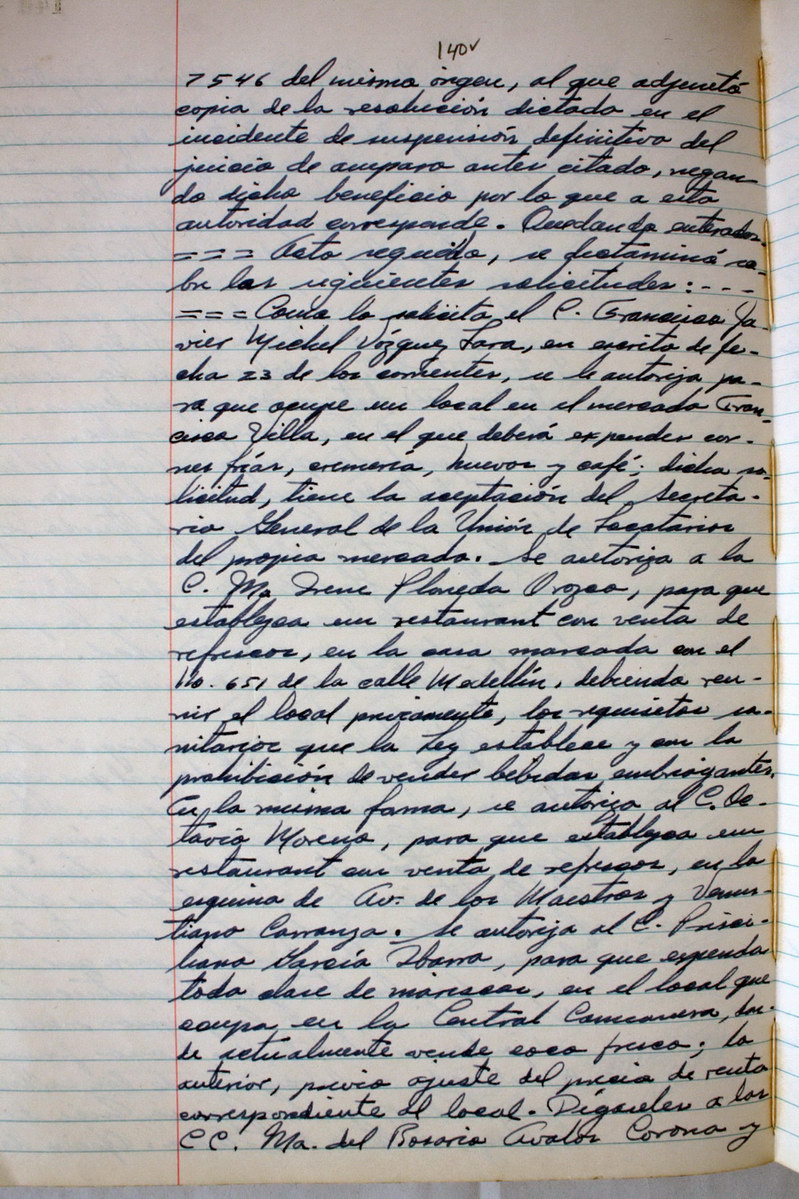 140v
7546 del mismo órgen, al que adjuntó
copia de la resolución dictada en el
incidente de suspensión definitiva del
juicio de amparo antes citado, negan-
do dicho beneficio por lo que a esta
autoridad corresponde. Quedando enterados.
=== Acto seguido, se dictaminó so-
bre las siguientes solicitudes: ---
=== Como lo solicita el C. Francisco Ja-
vier Michel Vázquez Lara, en escrito de fe-
cha 23 de los corrientes, se le autoriza pa-
ra que ocupe un local en el mercado Fran-
cisco Villa, en el que deberá expender car-
nes frías, cremería, huevos y café; dicha so-
licitud, tiene la aceptación del Secreta-
rio General de la Unión de Locatarios
del propio mercado. Se autoriza a la
C. Ma. Irene Ploneda Orozco, para que
establezca un restaurant con venta de
refrescos, en la casa marcada con el
No. 651 de la calle Medellín, debiendo reu-
nir el local previamente, los requisitos sa-
nitarios que la Ley establece y con la
prohibición de vender bebidas embriagantes.
En la misma forma, se autoriza al C. Oc-
tavio Moreno, para que establezca un
restaurant con venta de refrescos, en la
esquina de Av. de los Maestros y Venus-
tiano Carranza. Se autoriza al C. Prisci-
liano García Ibarra, para que expenda
toda clase de mariscos, en el local que
ocupa en la Central Camionera, don-
de actualmente vende coco fresco; lo
anterior, previo ajuste del precio de renta
correspondiente al local. Dígaseles a las
CC. Ma. del Rosario Avalos Corona y